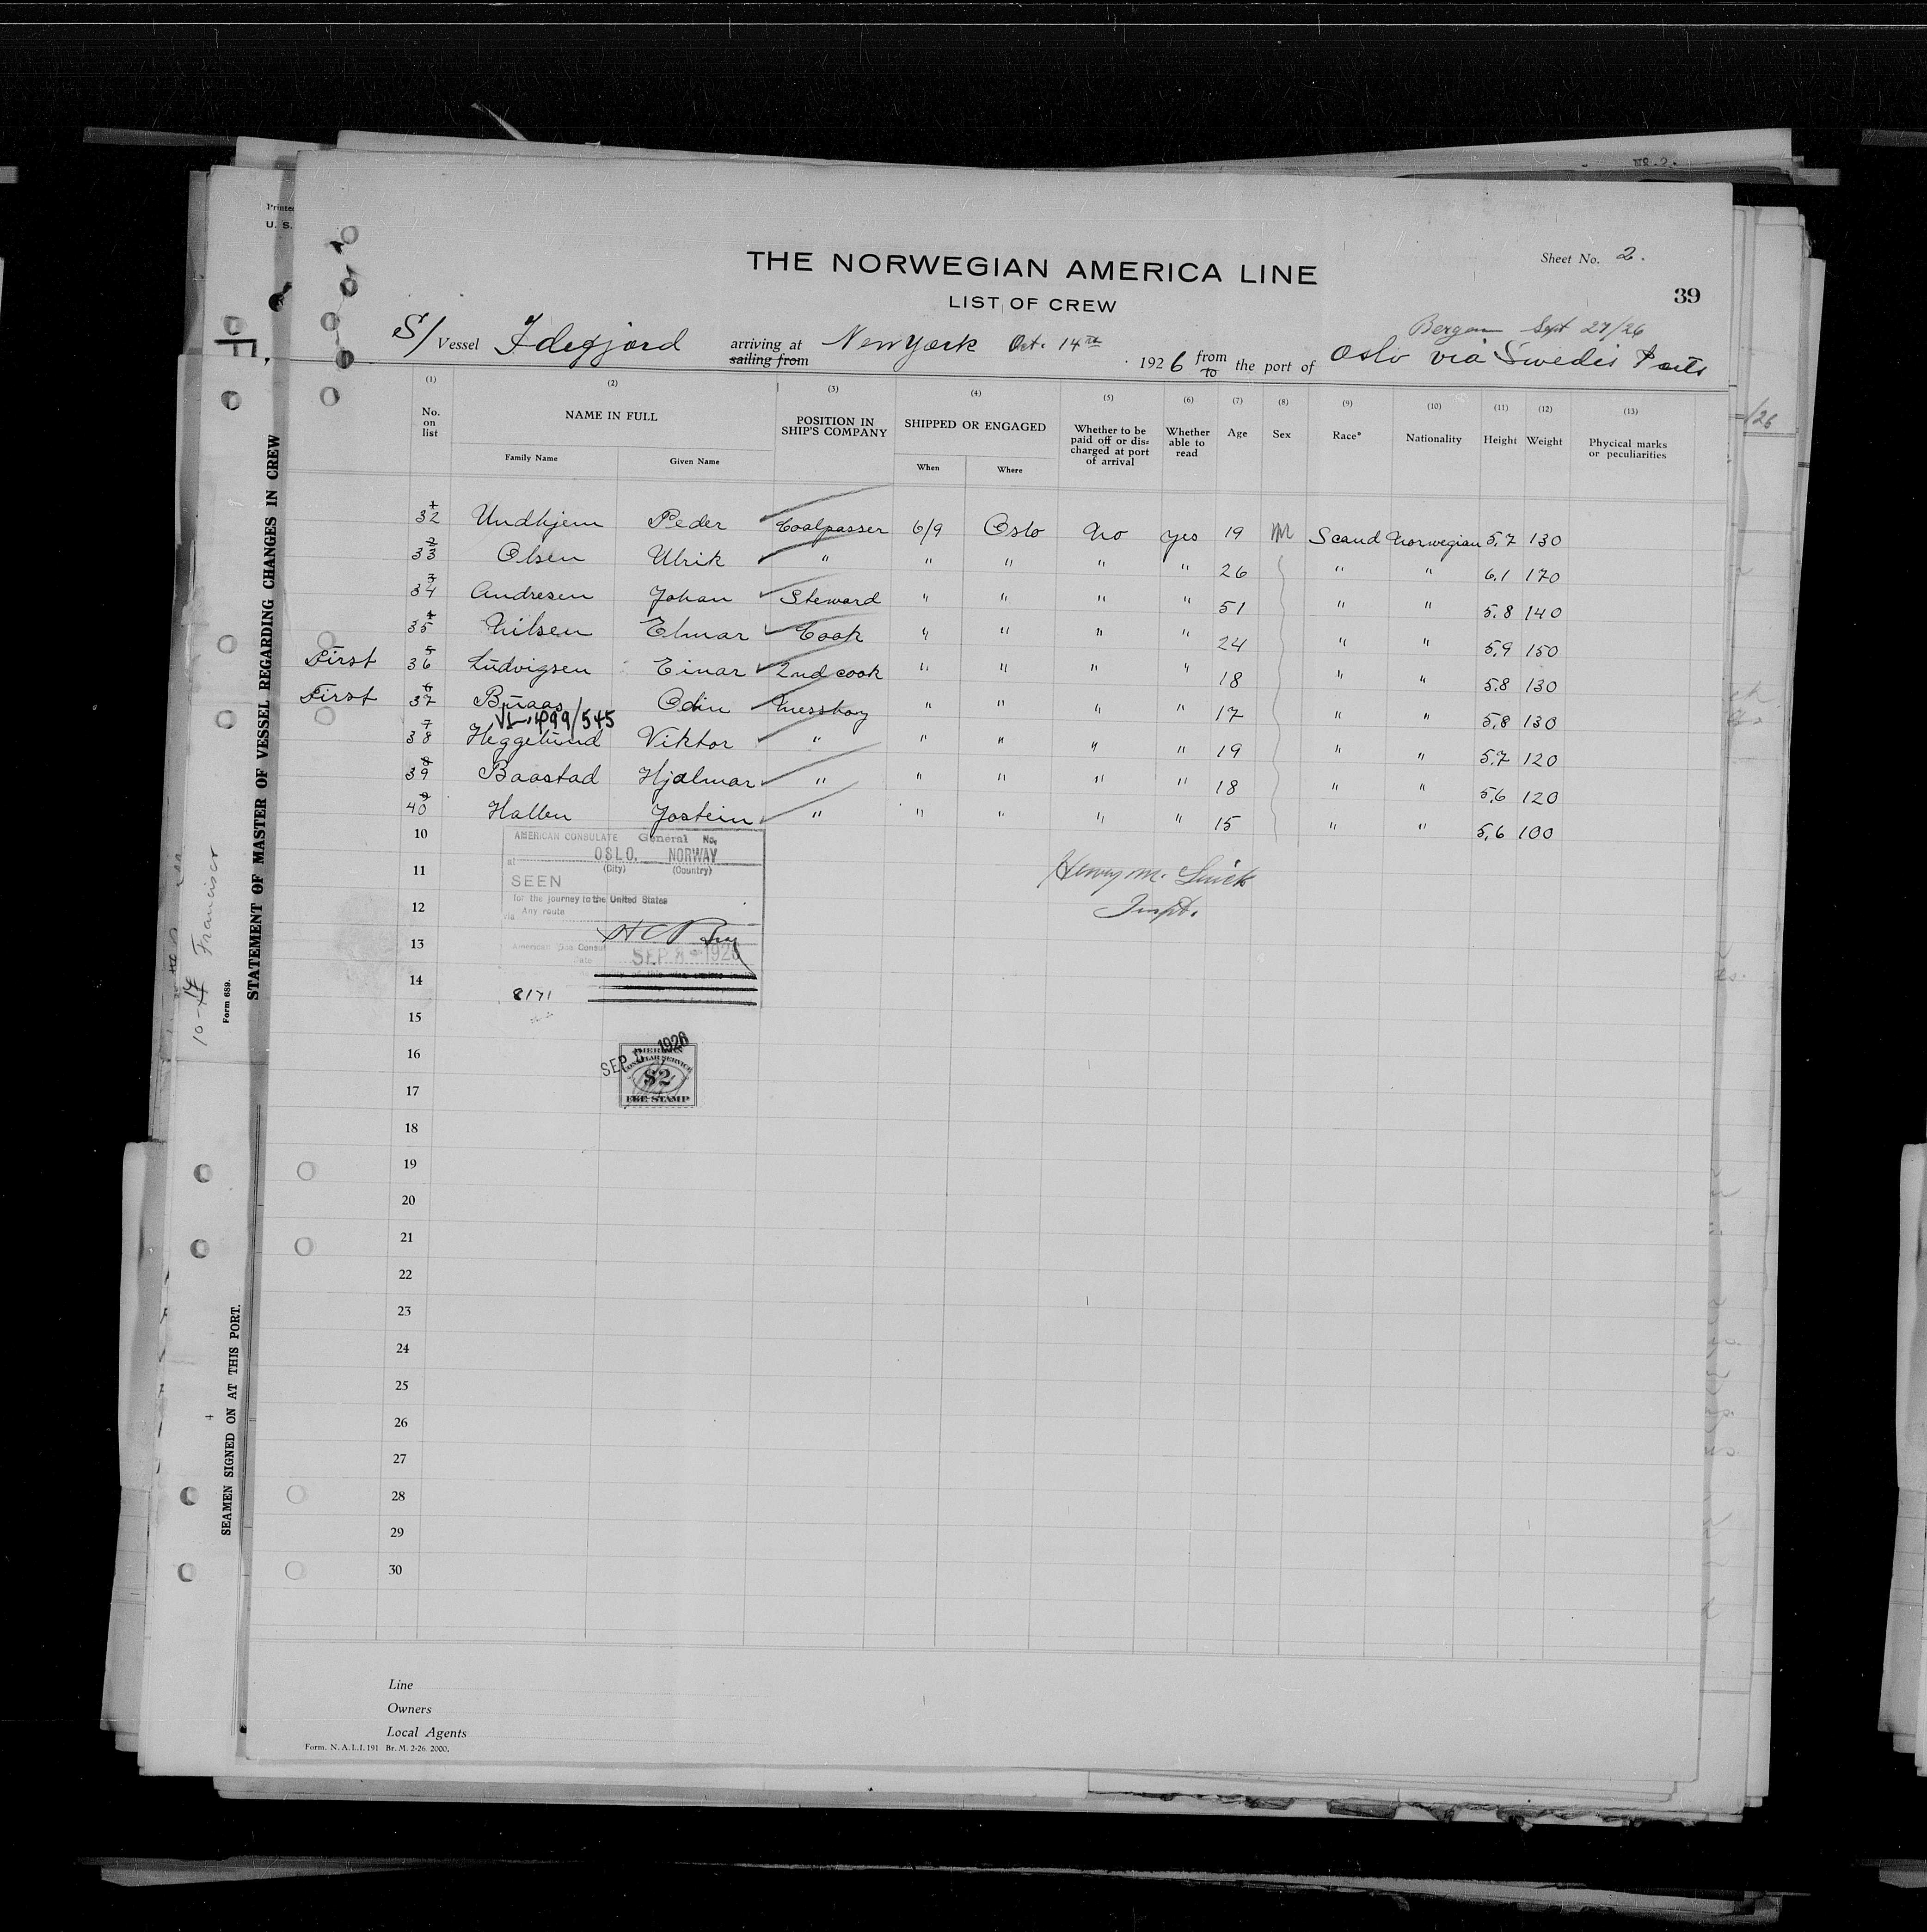 THE NORWEGIAN AMERICA LINE
LIST OF CREW
Sheet No. 2.
39
Bergen Sept 27/26
S/ Vessel Idefjord arriving at sailing from New York Oct. 14th 1926 from to the port of Oslo via Swedis Ports
(1) (2) (3) (4) (5) (6) (7) (8) (9) (10) (11) (12) (13)
No. on list NAME IN FULL Family Name Given Name POSITION IN SHIP'S COMPANY SHIPPED OR ENGAGED When Where Whether to be paid off or discharged at port of arrival Whether able to read Age Sex Race* Nationality Height Weight Phycical marks or peculiarities
32 Undhjem Peder Coalpasser 6/9 Oslo No yes 19 M Scand Norwegian 5.7 130
33 Olsen Ulrik " " " " " 26 " " 6.1 170
34 Andresen Johan Steward " " " " 51 " " 5.8 140
35 Nilsen Elmar Cook " " " " 24 " " 5.9 150
First 36 Ludvigsen Einar 2nd cook " " " " 18 " " 5.8 130
First 37 Buaas Odin Messboy " " " " 17 " " 5.8 130
99/545
38 Heggelund Viktor " " " " " 19 " " 5.7 120
39 Baastad Hjalmar " " " " " 18 " " 5.6 120
40 Hallen Jostein " " " " " 15 " " 5.6 100
10
AMERICAN CONSULATE General No.
at OSLO. NORWAY
(City) (Country)
11
SEEN
for the journey to the United States
12
via Any route
13
American Consul
date SEP 8 1926
14
8171
Henry M.
Inspt.
15
16
SEP 1926
AMERICAN
CONSULAR SERVICE
$2
FEE STAMP
17
18
19
20
21
22
23
24
25
26
27
28
29
30
Line
Owners
Local Agents
Form. N. A. L. I. 191 Br. M. 2-26. 2000.
STATEMENT OF MASTER OF VESSEL REGARDING CHANGES IN CREW
SEAMEN SIGNED ON AT THIS PORT.
Form 689.
Francisco
Printed
U. S.
No. 2.
/26